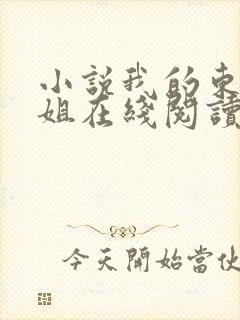 小説我的東
姐在綫閱讀
今天開始當伙